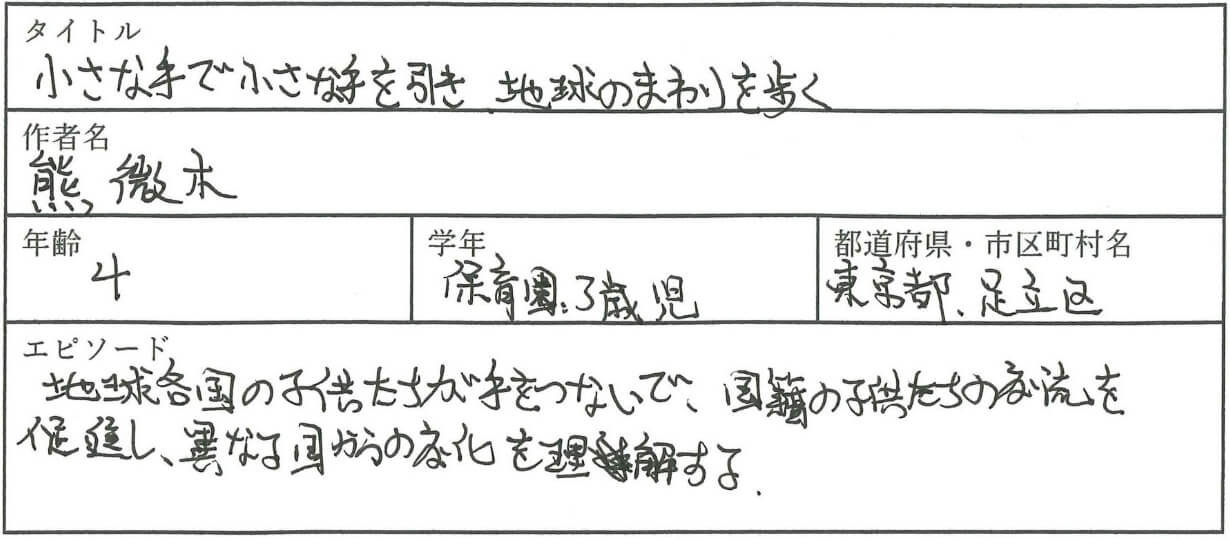 タイトル
小さな手で小さな手を引き 地球のまわりを歩く
作者名
熊 微木
年齢
4
学年
保育園:3歳児
都道府県・市区町村名
東京都、足立区
エピソード
地球各国の子供たちが手をつないで、国籍の子供たちの交流を
促進し、異なる国からの文化を理解する.